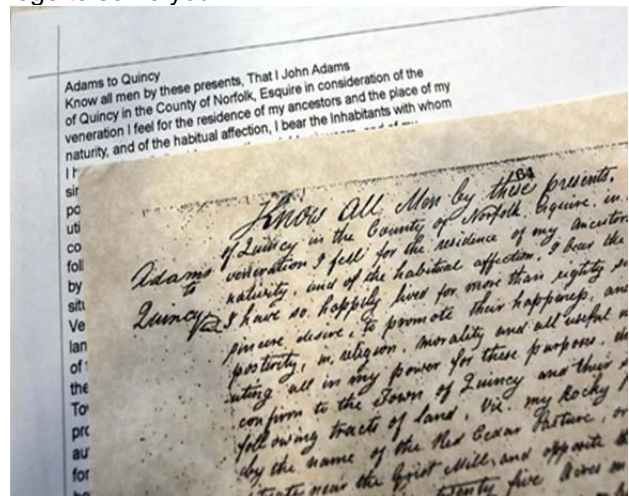 to you
Adams to Quincy
Know all men by these presents, That I John Adams
of Quincy in the County of Norfolk, Esquire in consideration of the
veneration I feel for the residence of my ancestors and the place of my
naturity, and of the habitual affection, I bear the Inhabitants with whom
I h
sir
po
uti
co
foll
by
situ
Ve
lan
of
the
To
pro
au
for
64
Know All Men by these presents.
of Quincy in the County of Norfolk Esquire in
Adams
to
Quincy
veneration I fell for the residence of my ancestor
naturity, and of the habitual affection, I bear the
I have so happily lived for more than eighty
sincere desire, to promote their happiness, and
posterity, in religion, morality and all useful
uting all in my power for these purpose,
confirm to the Town of Quincy and their
following tracts of land, Viz. my Rocky
by the name of the Red Cedar Pasture, or
near the Grist Mill, and opposite the
five Acres